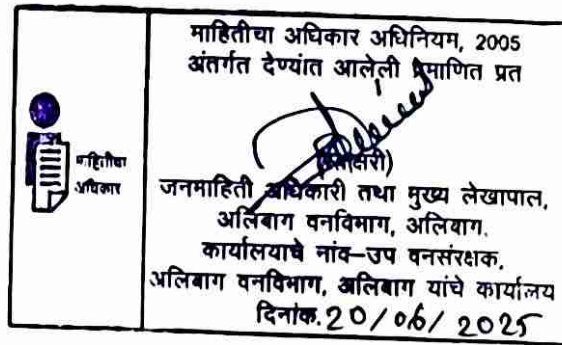 माहितीचा अधिकार अधिनियम, 2005
अंतर्गत देण्यांत आलेली प्रमाणित प्रत
माहितीचा
अधिकार
जनमाहिती अधिकारी तथा मुख्य लेखापाल,
अलिबाग वनविभाग, अलिबाग.
कार्यालयाचे नांव-उप वनसंरक्षक,
अलिबाग वनविभाग, अलिबाग यांचे कार्यालय
दिनांक.20/06/2025